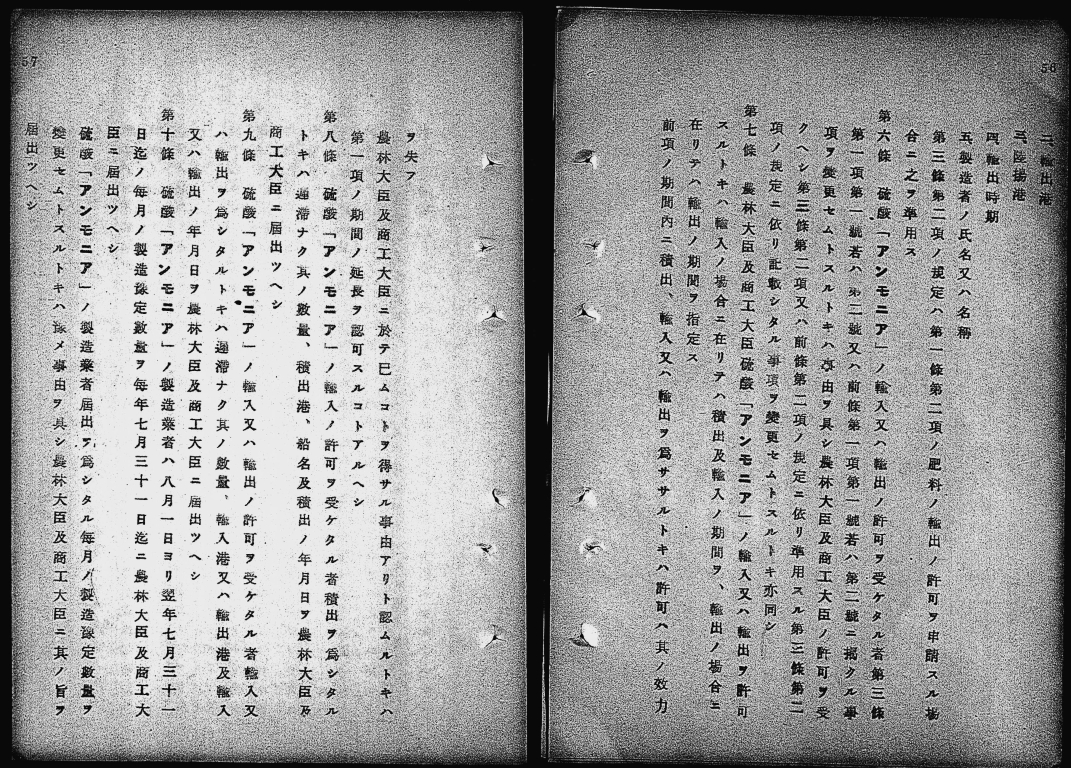 56
二、輸出港
三、陸揚港
四、輸出時期
五、製造者ノ氏名又ハ名稱
第三條第二項ノ規定ハ第一條第二項ノ肥料ノ輸出ノ許可ヲ申請スル場
合ニ之ヲ準用ス
第六條 硫酸「アンモニア」ノ輸入又ハ輸出ノ許可ヲ受ケタル者第三條
第一項第一號若ハ第二號又ハ前條第一項第一號若ハ第二號ニ揭クル事
項ヲ變更セムトスルトキハ事由ヲ具シ農林大臣及商工大臣ノ許可ヲ受
クヘシ第三條第二項又ハ前條第二項ノ規定ニ依リ準用スル第三條第二
項ノ規定ニ依リ記載シタル事項ヲ變更セムトスルトキ亦同シ
第七條 農林大臣及商工大臣硫酸「アンモニア」ノ輸入又ハ輸出ヲ許可
スルトキハ輸入ノ場合ニ在リテハ積出及輸入ノ期間ヲ、輸出ノ場合ニ
在リテハ輸出ノ期間ヲ指定ス
前項ノ期間內ニ積出、輸入又ハ輸出ヲ爲ササルトキハ許可ハ其ノ效力
57
ヲ失フ
農林大臣及商工大臣ニ於テ已ムコトヲ得サル事由アリト認ムルトキハ
第一項ノ期間ノ延長ヲ認可スルコトアルヘシ
第八條 硫酸「アンモニア」ノ輸入ノ許可ヲ受ケタル者積出ヲ爲シタル
トキハ遲滯ナク其ノ數量、積出港、船名及積出ノ年月日ヲ農林大臣及
商工大臣ニ屆出ツヘシ
第九條 硫酸「アンモニア」ノ輸入又ハ輸出ノ許可ヲ受ケタル者輸入又
ハ輸出ヲ爲シタルトキハ遲滯ナク其ノ數量、輸入港又ハ輸出港及輸入
又ハ輸出ノ年月日ヲ農林大臣及商工大臣ニ屆出ツヘシ
第十條 硫酸「アンモニア」ノ製造業者ハ八月一日ヨリ翌年七月三十一
日迄ノ每月ノ製造豫定數量ヲ每年七月三十一日迄ニ農林大臣及商工大
臣ニ屆出ツヘシ
硫酸「アンモニア」ノ製造業者屆出ヲ爲シタル每月ノ製造豫定數量ヲ
變更セムトスルトキハ豫メ事由ヲ具シ農林大臣及商工大臣ニ其ノ旨ヲ
屆出ツヘシ